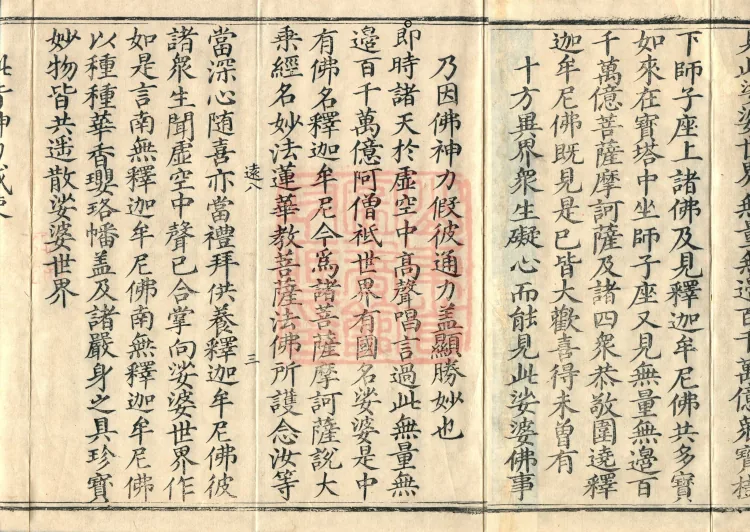 此娑婆世界無量無邊百千萬億衆寶樹
下師子座上諸佛及見釋迦牟尼佛共多寶
如來在寶塔中坐師子座又見無量無邊百
千萬億菩薩摩訶薩及諸四衆恭敬圍遶釋
迦牟尼佛既見是已皆大歡喜得未曾有
十方異界衆生礙心而能見此娑婆佛事
乃因佛神力假彼通力盖顯勝妙也
即時諸天於虛空中高聲唱言過此無量無
邊百千萬億阿僧祇世界有國名娑婆是中
有佛名釋迦牟尼今爲諸菩薩摩訶薩說大
乘經名妙法蓮華教菩薩法佛所護念汝等
遠八 三
當深心随喜亦當禮拜供養釋迦牟尼佛彼
諸衆生聞虛空中聲已合掌向娑婆世界作
如是言南無釋迦牟尼佛南無釋迦牟尼佛
以種種華香瓔珞幡盖及諸嚴身之具珍寶
妙物皆共遥散娑婆世界